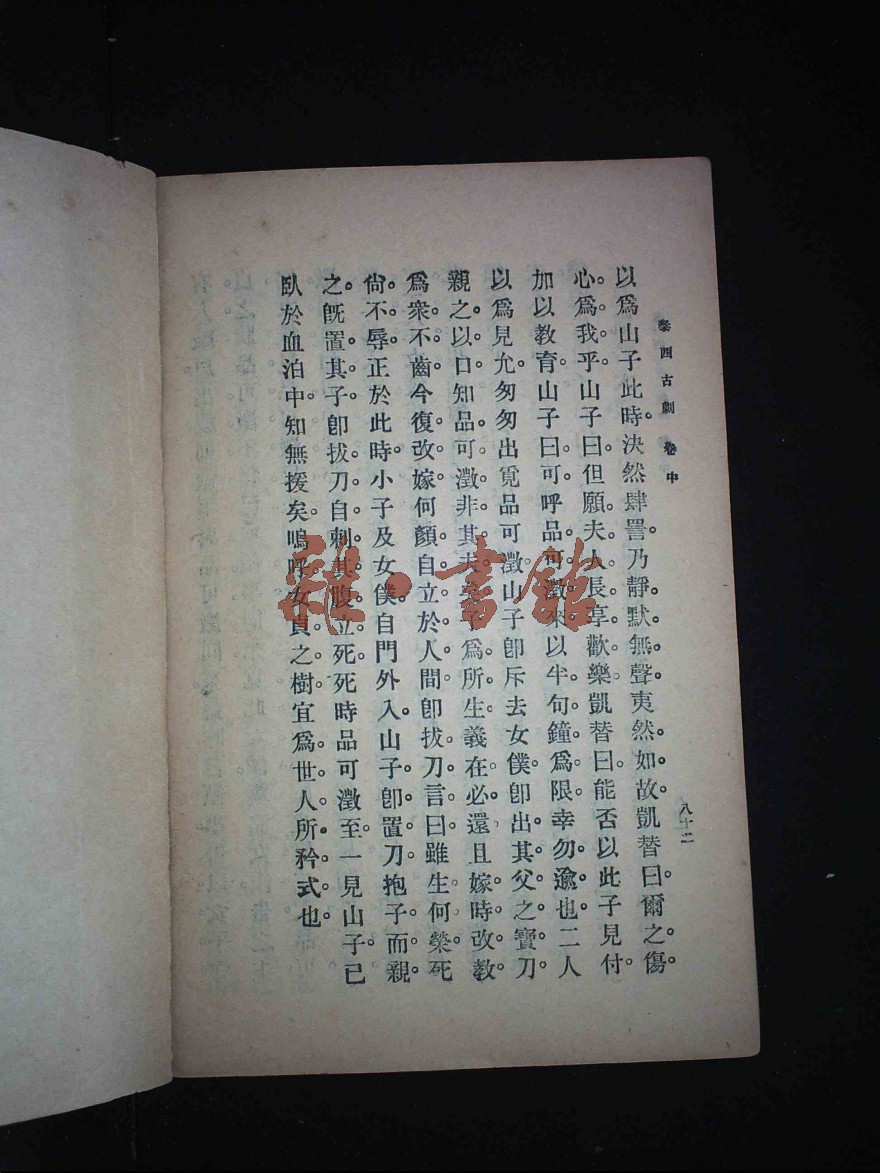 泰西古劇 卷中 八十二
以爲山子此時決然肆詈。乃靜默無聲。夷然如故。凱替曰。爾之傷
心。爲我乎。山子曰。但願夫人長享歡樂。凱替曰。能否以此子見付。
加以教育。山子曰。可。呼品可澂來。以半句鐘爲限。幸勿逾也。二人
以爲見允。匆匆出覓品可澂。山子卽斥去女僕。卽出其父之寶刀。
親之以口。知品可澂非其夫矣。子爲所生。義在必還。且嫁時改教。
爲衆不齒。今復改嫁。何顏自立於人間。卽拔刀言曰。雖生何榮。死
尙不辱。正於此時。小子及女僕自門外入。山子卽置刀抱子而親
之。旣置其子。卽拔刀自刺其腹。立死。死時品可澂至。一見山子已
臥於血泊中。知無援矣。嗚呼。女貞之樹。宜爲世人所矜式也。
雜·書館